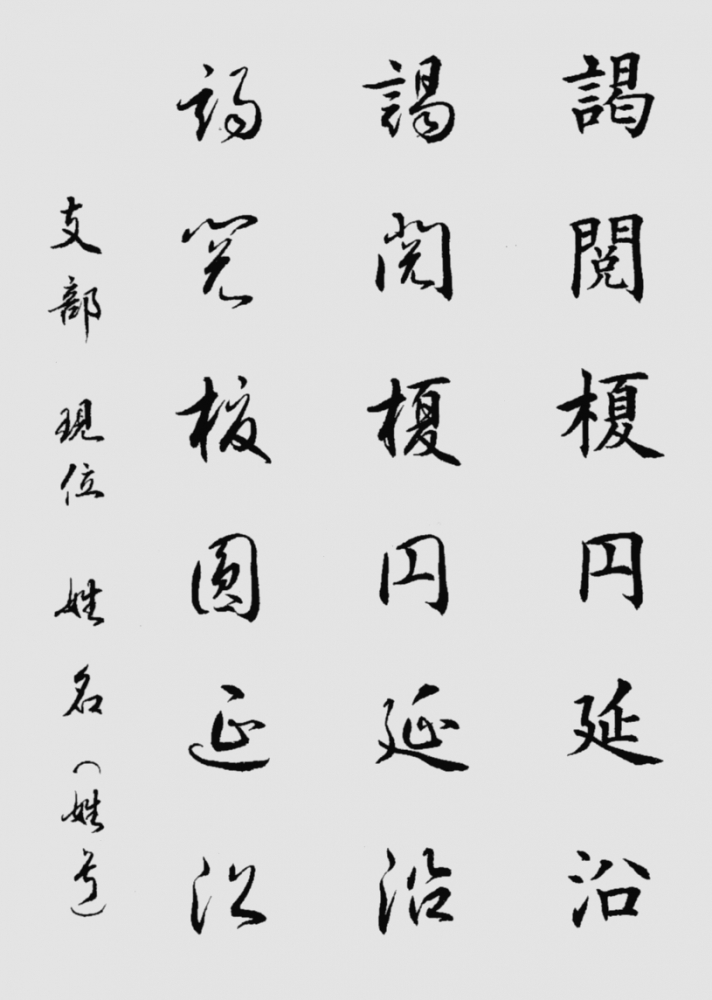 謁閲榎円延沿
謁閲榎円延沿
謁閲榎圓延沿
支部 現位 姓名（姓号）